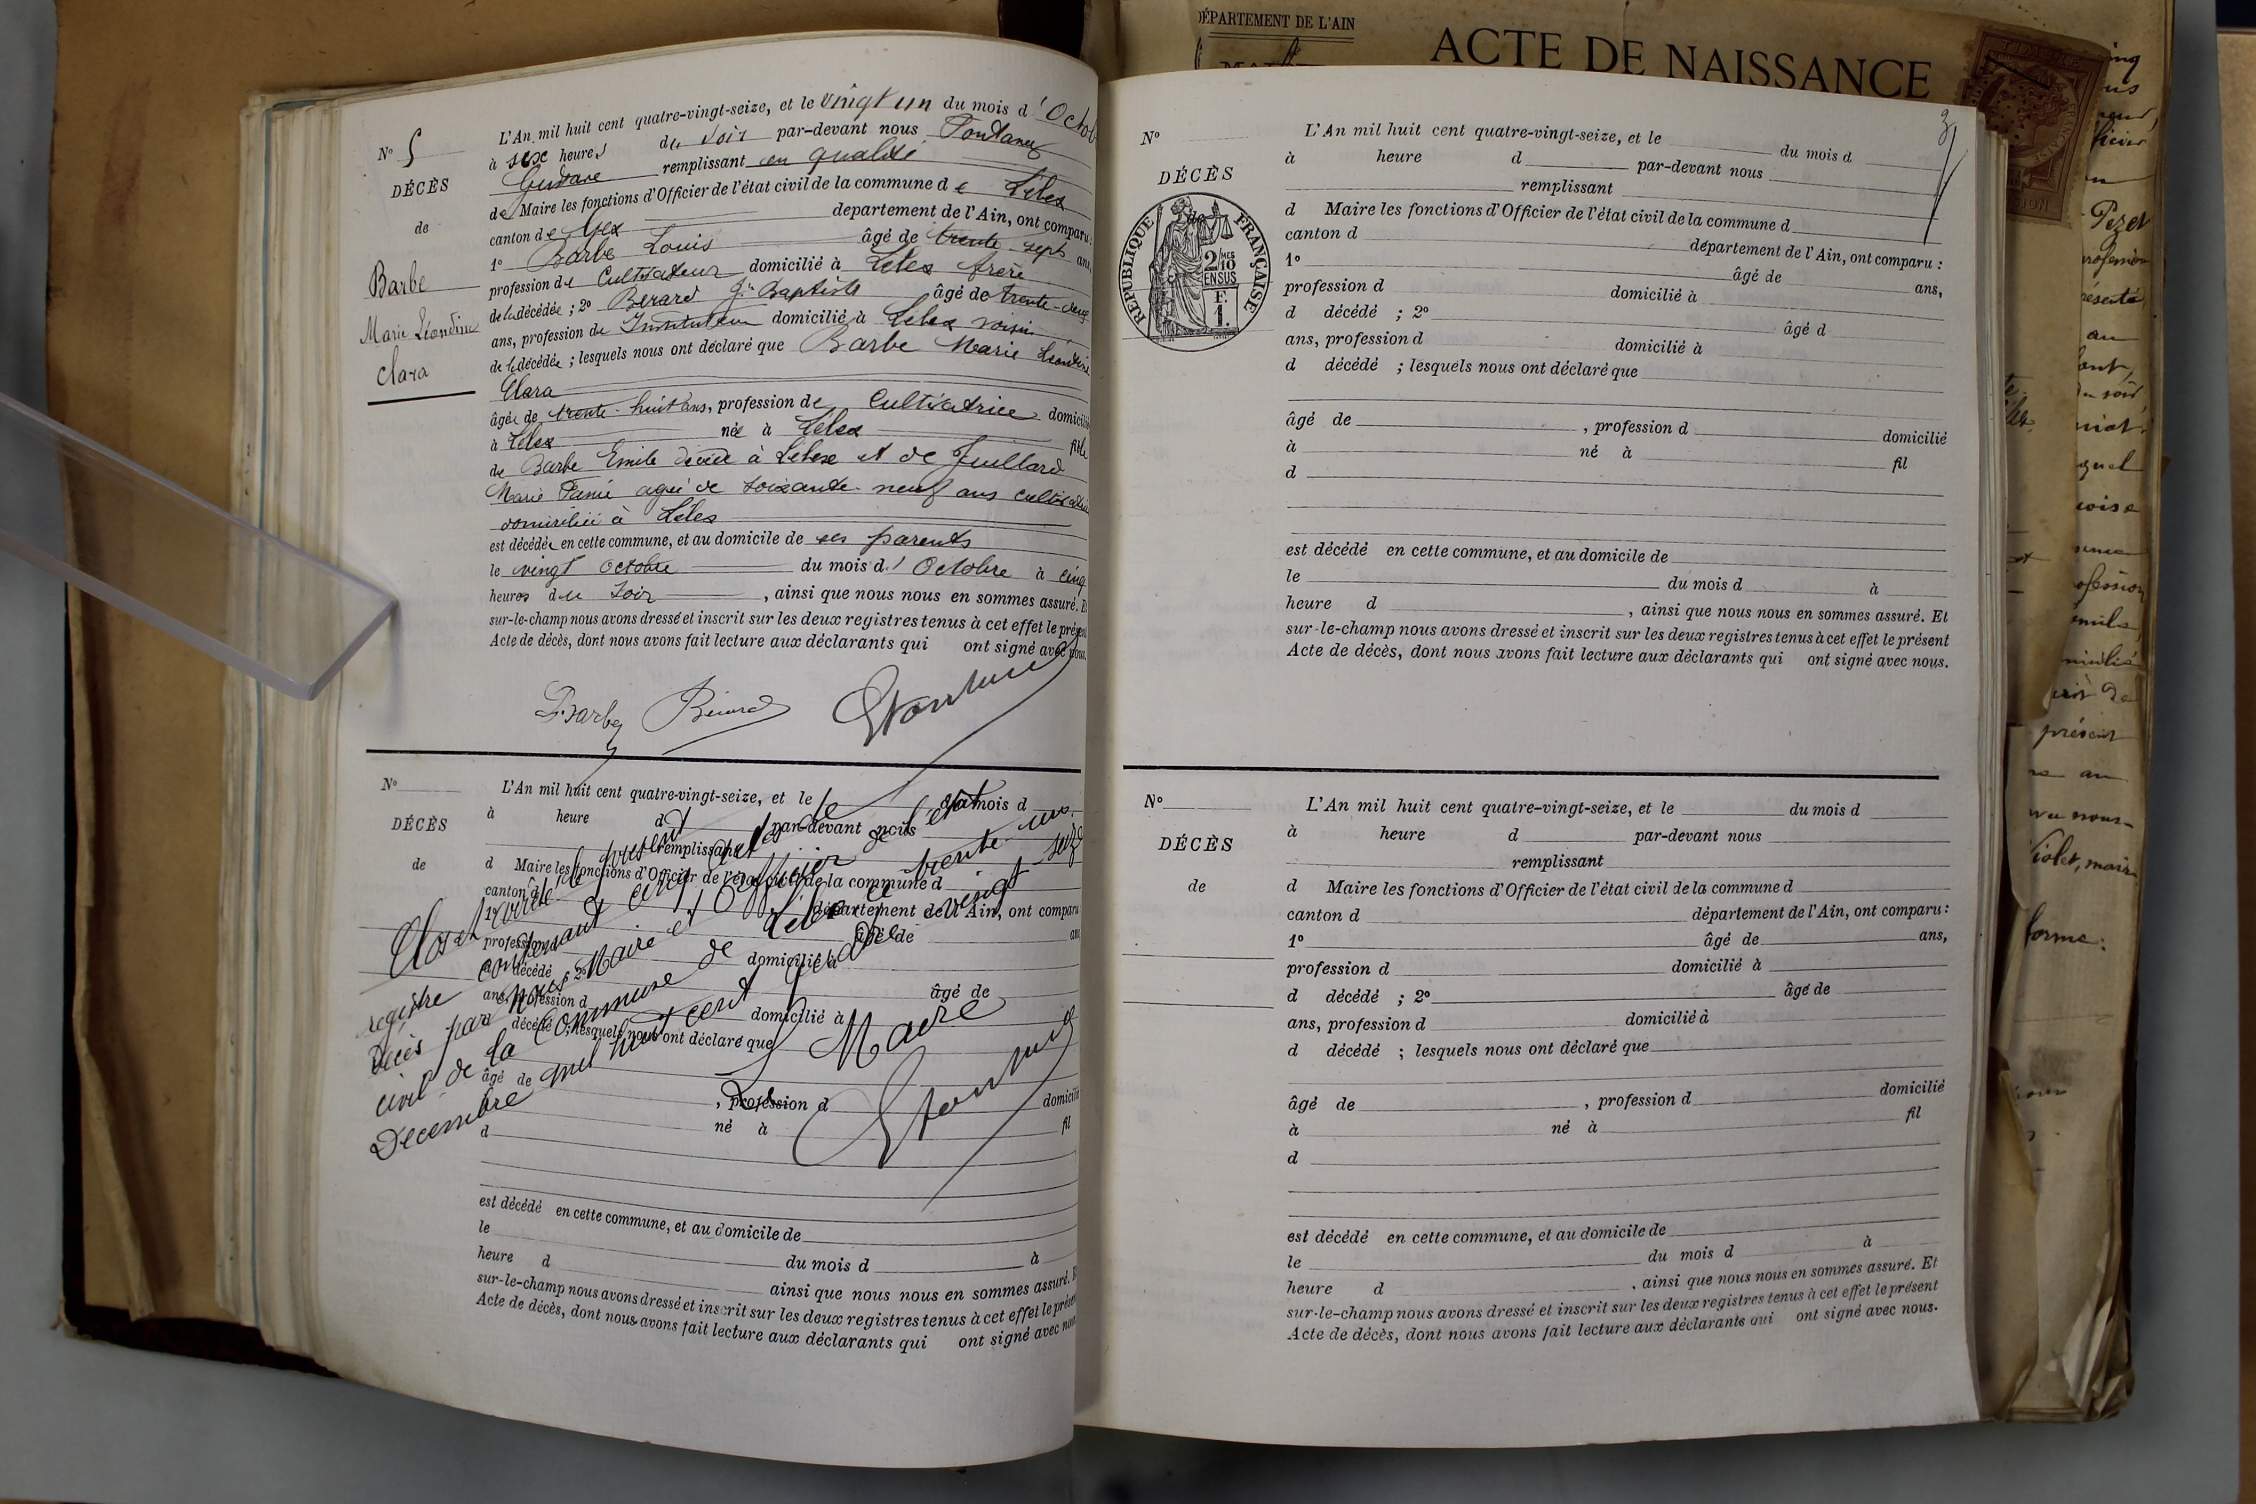 N° 5
DÉCÈS
de
Barbe
Marie Léontine
Clara
L'An mil huit cent quatre-vingt-seize, et le vingt un du mois d'Octob
à six heures du soir par-devant nous Fontanez
Gustave remplissant en qualité
de Maire les fonctions d'Officier de l'état civil de la commune de Lélex
canton de Gex département de l'Ain, ont comparu:
1° Barbe Louis âgé de trente-sept ans,
profession de Cultivateur domicilié à Lélex frère
de la décédée ; 2° Bérard Jn Baptiste âgé de trente-deux
ans, profession de Instituteur domicilié à Lélex voisin
de la décédée ; lesquels nous ont déclaré que Barbe Marie Léontine
Clara
âgée de trente-huit ans, profession de Cultivatrice domicilié
à Lélex née à Lélex fille
de Barbe Emile décédé à Lélex et de Juillard
Marie agée de soixante-neuf ans cultivatrice
domiciliée à Lélex
est décédée en cette commune, et au domicile de ses parents
le vingt octobre du mois d'Octobre à cinq
heures du soir , ainsi que nous nous en sommes assuré. Et
sur-le-champ nous avons dressé et inscrit sur les deux registres tenus à cet effet le présent
Acte de décès, dont nous avons fait lecture aux déclarants qui ont signé avec nous.
L. Barbe Bérard
N°
DÉCÈS
de
L'An mil huit cent quatre-vingt-seize, et le du mois d
à heure d par-devant nous
remplissant
d Maire les fonctions d'Officier de l'état civil de la commune d
canton d département de l'Ain, ont comparu
1° âgé de an
profession d domicilié à
d décédé ; 2° âgé de
ans, profession d domicilié à
d décédé ; lesquels nous ont déclaré que
âgé de
, profession d domicilié
né à fil
d
Clos et arrêté le présent
registre contenant cinq actes de
décès par nous Maire et Officier de l'état
civil de la Commune de Lélex le trente-un
Décembre mil huit cent quatre vingt seize
Le Maire
est décédé en cette commune, et au domicile de
le du mois d à
heure d ainsi que nous nous en sommes assuré. E
sur-le-champ nous avons dressé et inscrit sur les deux registres tenus à cet effet le présen
Acte de décès, dont nous avons fait lecture aux déclarants qui ont signé avec nou
DÉPARTEMENT DE L'AIN
ACTE DE NAISSANCE
3
N°
DÉCÈS
de
RÉPUBLIQUE FRANÇAISE
2/10
MES
EN SUS
F.
1.
L'An mil huit cent quatre-vingt-seize, et le du mois d
à heure d par-devant nous
remplissant
d Maire les fonctions d'Officier de l'état civil de la commune d
canton d département de l'Ain, ont comparu :
1° âgé de ans,
profession d domicilié à
d décédé ; 2° âgé d
ans, profession d domicilié à
d décédé ; lesquels nous ont déclaré que
âgé de , profession d domicilié
à né à fil
d
est décédé en cette commune, et au domicile de
le du mois d à
heure d , ainsi que nous nous en sommes assuré. Et
sur-le-champ nous avons dressé et inscrit sur les deux registres tenus à cet effet le présent
Acte de décès, dont nous avons fait lecture aux déclarants qui ont signé avec nous.
N°
DÉCÈS
de
L'An mil huit cent quatre-vingt-seize, et le du mois d
à heure d par-devant nous
remplissant
d Maire les fonctions d'Officier de l'état civil de la commune d
canton d département de l'Ain, ont comparu:
1° âgé de ans,
profession d domicilié à
d décédé ; 2° âgé de
ans, profession d domicilié à
d décédé ; lesquels nous ont déclaré que
âgé de , profession d domicilié
à né à fil
d
est décédé en cette commune, et au domicile de
le du mois d à
heure d , ainsi que nous nous en sommes assuré. Et
sur-le-champ nous avons dressé et inscrit sur les deux registres tenus à cet effet le présent
Acte de décès, dont nous avons fait lecture aux déclarants qui ont signé avec nous.
Pezet
présent
Violet, maire
forme: